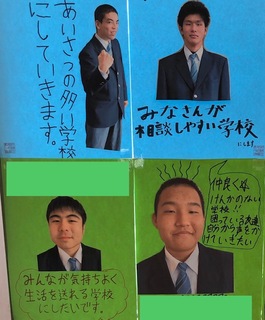 あいさつの多い学校
にしていきます。
みなさんが
相談しやすい学校
にします。
みんなが気持ちよく
生活を送れる学校
にしたいです。
仲良く
けんかのない
学校!!
困っている友達
自分から声をか
けていきたい